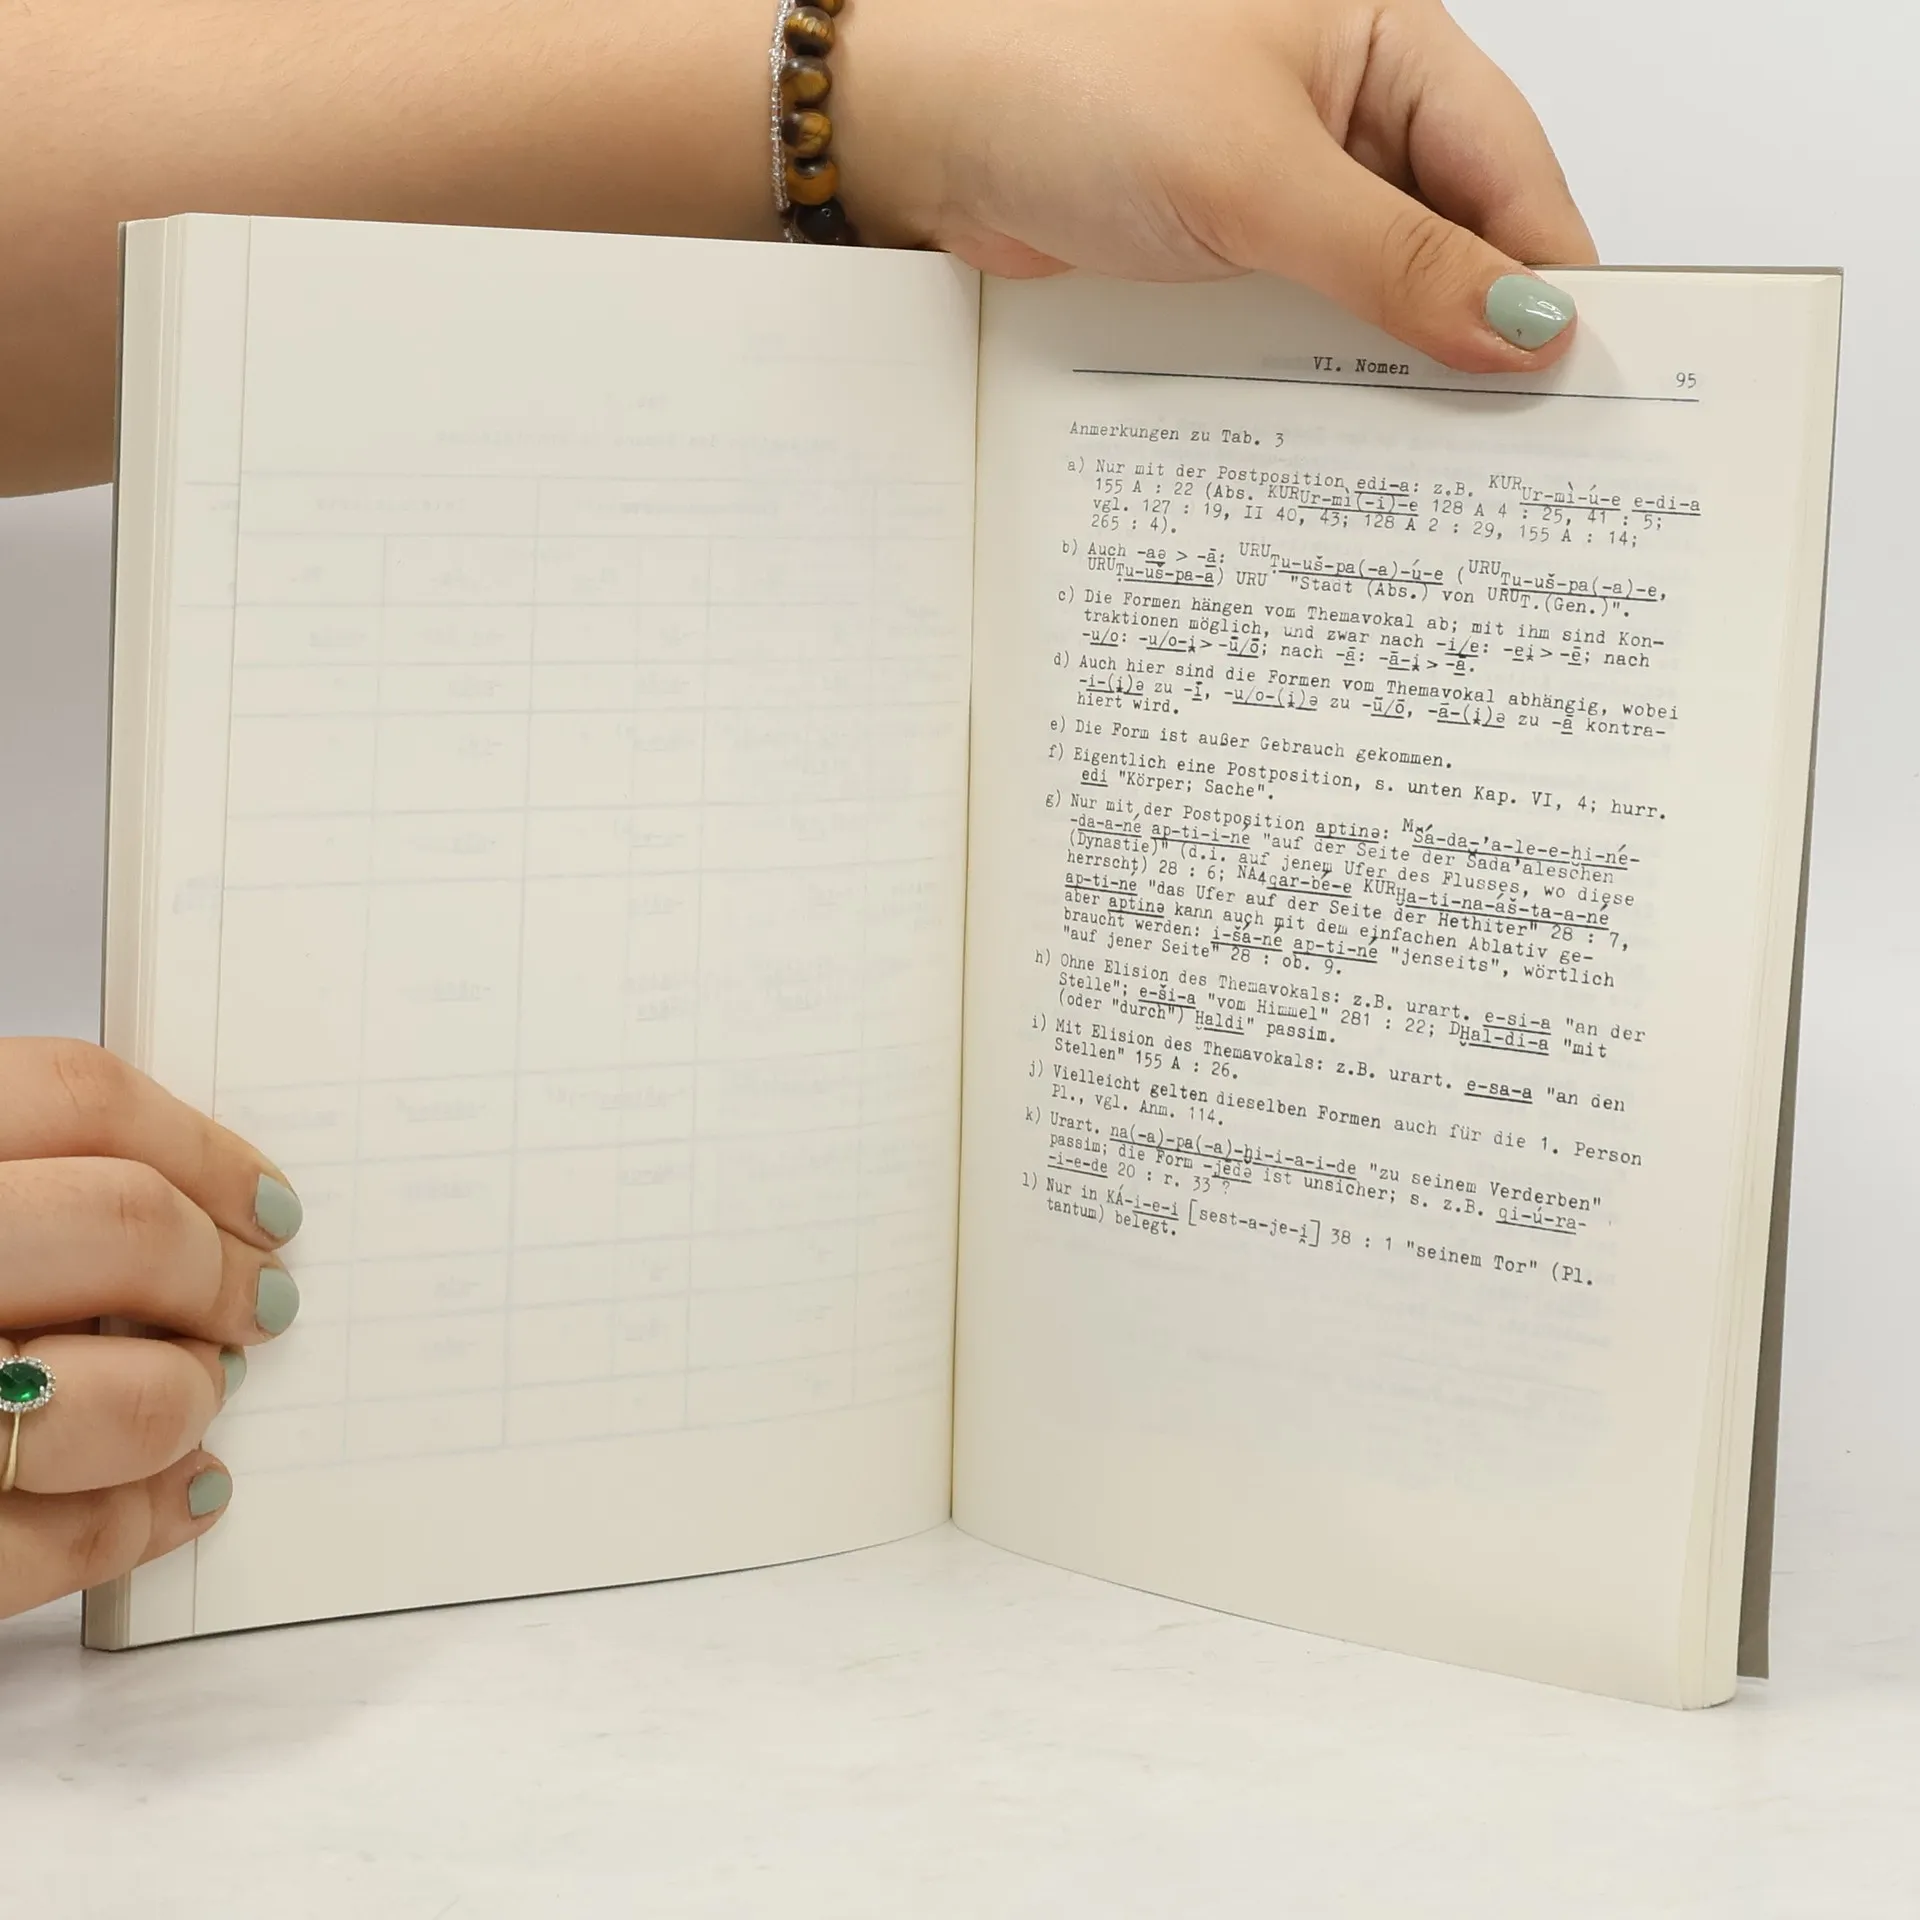 VI. Nomen
95
Anmerkungen zu Tab. 3
a) Nur mit der Postposition edi-a: z.B. KURUr-mì-ú-e e-di-a
155 A : 22 (Abs. KURUr-mì(-i)-e 128 A 4 : 25, 41 : 5;
vgl. 127 : 19, II 40, 43; 128 A 2 : 29, 155 A : 14;
265 : 4).
b) Auch -aə > -ā: URUṬu-uš-pa(-a)-ú-e (URUṬu-uš-pa(-a)-e,
URUṬu-uš-pa-a) URU "Stadt (Abs.) von URUT.(Gen.)".
c) Die Formen hängen vom Themavokal ab; mit ihm sind Kon-
traktionen möglich, und zwar nach -i/e: -ei̯ > -ē; nach
-u/o: -u/o-i̯ > -ū/ō; nach -ā: -ā-i̯ > -ā.
d) Auch hier sind die Formen vom Themavokal abhängig, wobei
-i-(i̯)ə zu -ī, -u/o-(i̯)ə zu -ū/ō, -ā-(i̯)ə zu -ā kontra-
hiert wird.
e) Die Form ist außer Gebrauch gekommen.
f) Eigentlich eine Postposition, s. unten Kap. VI, 4; hurr.
edi "Körper; Sache".
g) Nur mit der Postposition aptinə: MŠá-da-'a-le-e-ḫi-né-
-da-a-né ap-ti-i-né "auf der Seite der Šada'aleschen
(Dynastie)" (d.i. auf jenem Ufer des Flusses, wo diese
herrscht) 28 : 6; NA4qar-bé-e KURḪa-ti-na-áš-ta-a-né
ap-ti-né "das Ufer auf der Seite der Hethiter" 28 : 7,
aber aptinə kann auch mit dem einfachen Ablativ ge-
braucht werden: i-šá-né ap-ti-né "jenseits", wörtlich
"auf jener Seite" 28 : ob. 9.
h) Ohne Elision des Themavokals: z.B. urart. e-si-a "an der
Stelle"; e-ši-a "vom Himmel" 281 : 22; DḪal-di-a "mit
(oder "durch") Ḫaldi" passim.
i) Mit Elision des Themavokals: z.B. urart. e-sa-a "an den
Stellen" 155 A : 26.
j) Vielleicht gelten dieselben Formen auch für die 1. Person
Pl., vgl. Anm. 114.
k) Urart. na(-a)-pa(-a)-ḫi-i-a-i-de "zu seinem Verderben"
passim; die Form -jēdə ist unsicher; s. z.B. qi-ú-ra-
-i-e-de 20 : r. 33 ?
l) Nur in KÁ-i-e-i [sest-a-je-i̯] 38 : 1 "seinem Tor" (Pl.
tantum) belegt.